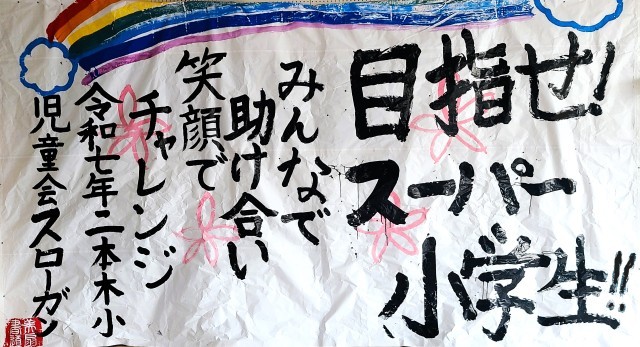 目指せ!
スーパー
小学生!!
みんなで
助け合い
笑顔で
チャレンジ
令和七年二本木小
児童会スローガン